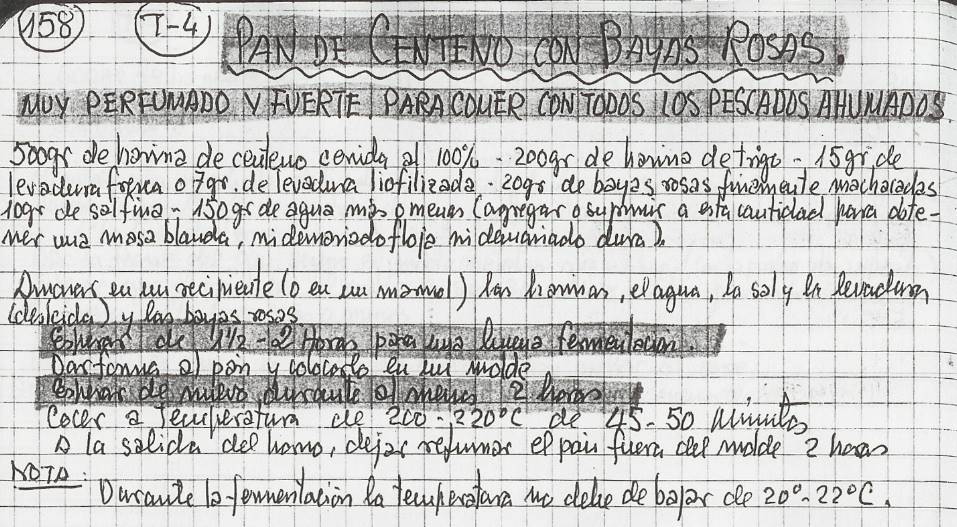 158 T-4 PAN DE CENTENO CON BAYAS ROSAS.
MUY PERFUMADO Y FUERTE, PARA COMER CON TODOS LOS PESCADOS AHUMADOS
500gr de harina de centeno cernida al 100% - 200gr de harina de trigo - 15gr. de
levadura fresca o 7gr. de levadura liofilizada - 20gr de bayas rosas finamente machacadas
10gr de sal fina - 150gr de agua más o menos (agregar o suprimir a esta cantidad para obte-
ner una masa blanda, ni demasiado floja ni demasiado dura).
Amasar en un recipiente (o en un marmol) las harinas, el agua, la sal y la levadura
(desleida) y las bayas rosas
Esperar de 1 1/2 - 2 Horas para una buena fermentación.
Dar forma al pan y colocarlo en un molde
Esperar de nuevo, durante al menos 2 horas
Cocer a temperatura de 200-220°C de 45-50 Minutos
A la salida del horno, dejar refumar el pan fuera del molde 2 horas
NOTA:
Durante la fermentación la temperatura no debe de bajar de 20°-22°C.